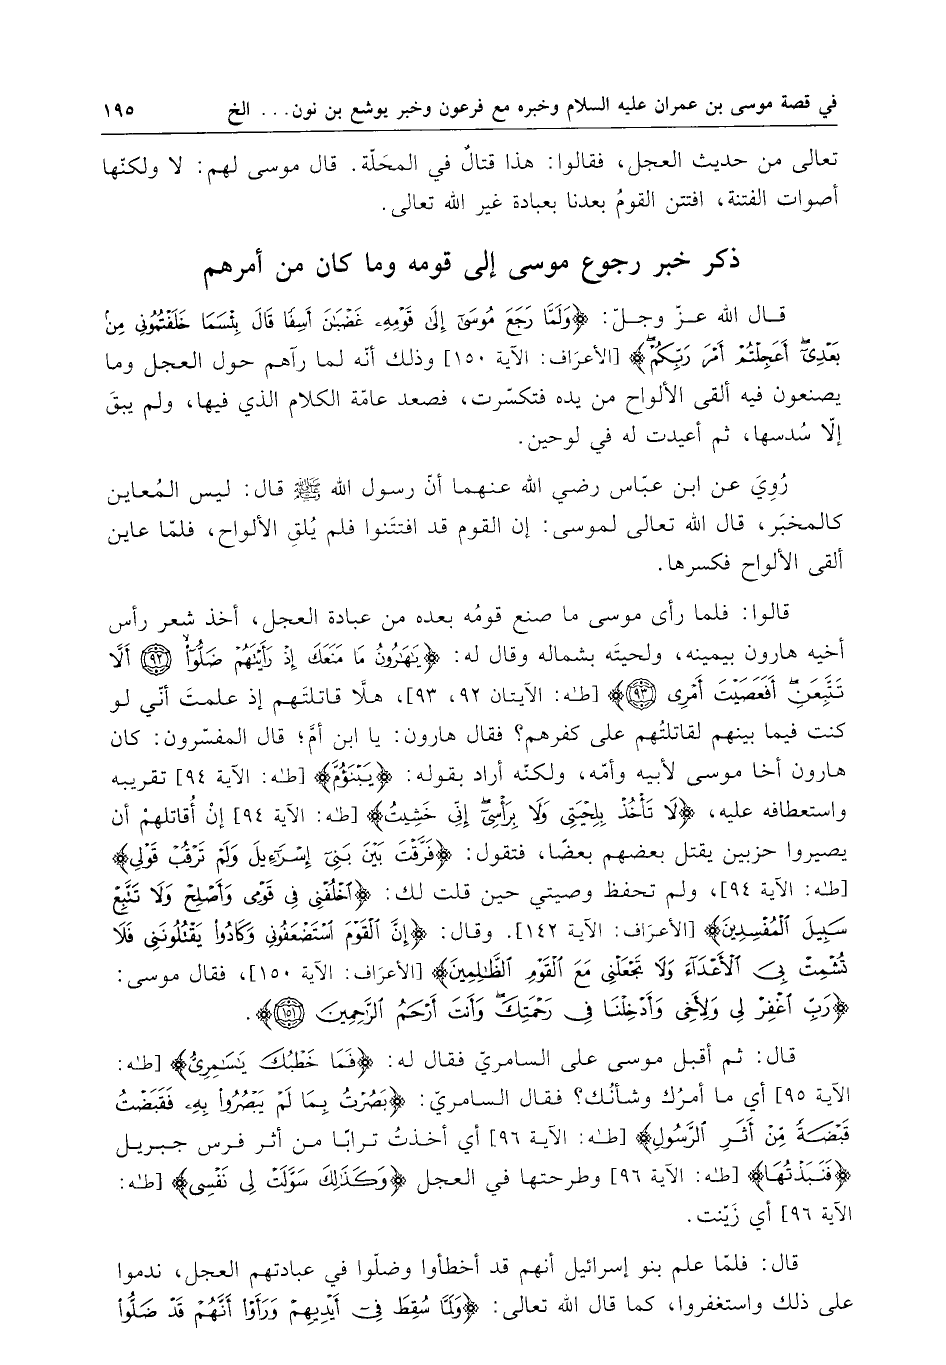 في قصة موسى بن عمران عليه السلام وخبره مع فرعون وخبر يوشع بن نون... الخ ١٩٥
تعالى من حديث العجل، فقالوا: هذا قتالٌ في المحَلّة. قال موسى لهم: لا ولكنّها
أصوات الفتنة، افتتن القومُ بعدنا بعبادة غير الله تعالى.
ذكر خبر رجوع موسى إلى قومه وما كان من أمرهم
قـال الله عـزّ وجـلّ: ﴿وَلَمَّا رَجَعَ مُوسَىٰٓ إِلَىٰ قَوْمِهِۦ غَضْبَٰنَ أَسِفًا قَالَ بِئْسَمَا خَلَفْتُمُونِي مِنۢ
بَعْدِيٓۖ أَعَجِلْتُمْ أَمْرَ رَبِّكُمْۖ﴾ [الأعرَاف: الآية ١٥٠] وذلك أنّه لما رآهم حول العجل وما
يصنعون فيه ألقى الألواح من يده فتكسّرت، فصعد عامّة الكلام الذي فيها، ولم يبقَ
إلّا سُدسها، ثم أعيدت له في لوحين.
رُوِيَ عن ابن عبّاس رضي الله عنهما أنّ رسول الله ﷺ قال: ليس المُعاين
كالمخبَر، قال الله تعالى لموسى: إن القوم قد افتتَنوا فلم يُلقِ الألواح، فلمّا عاين
ألقى الألواح فكسرها.
قالوا: فلما رأى موسى ما صنع قومُه بعده من عبادة العجل، أخذ شعر رأس
أخيه هارون بيمينه، ولحيتَه بشماله وقال له: ﴿يَٰهَٰرُونُ مَا مَنَعَكَ إِذْ رَأَيْتَهُمْ ضَلُّوٓا۟ ۙ(٩٢) أَلَّا
تَتَّبِعَنِۖ أَفَعَصَيْتَ أَمْرِي (٩٣)﴾ [طـٰه: الآيتان ٩٢، ٩٣]، هلّا قاتلتَهم إذ علمتَ أنّي لو
كنت فيما بينهم لقاتلتُهم على كفرهم؟ فقال هارون: يا ابن أمَّ؛ قال المفسّرون: كان
هارون أخا موسى لأبيه وأمّه، ولكنّه أراد بقوله: ﴿يَبْنَؤُمَّ﴾ [طـٰه: الآية ٩٤] تقريبه
واستعطافه عليه، ﴿لَا تَأْخُذْ بِلِحْيَتِي وَلَا بِرَأْسِيٓۖ إِنِّي خَشِيتُ﴾ [طـٰه: الآية ٩٤] إنْ أُقاتلهمْ أن
يصيروا حزبين يقتل بعضهم بعضًا، فتقول: ﴿فَرَّقْتَ بَيْنَ بَنِيٓ إِسْرَٰٓءِيلَ وَلَمْ تَرْقُبْ قَوْلِي﴾
[طـٰه: الآية ٩٤]، ولم تحفظ وصيتي حين قلت لك: ﴿ٱخْلُفْنِي فِي قَوْمِي وَأَصْلِحْ وَلَا تَتَّبِعْ
سَبِيلَ ٱلْمُفْسِدِينَ﴾ [الأعرَاف: الآية ١٤٢]. وقال: ﴿إِنَّ ٱلْقَوْمَ ٱسْتَضْعَفُونِي وَكَادُوا۟ يَقْتُلُونَنِي فَلَا
تُشْمِتْ بِيَ ٱلْأَعْدَآءَ وَلَا تَجْعَلْنِي مَعَ ٱلْقَوْمِ ٱلظَّٰلِمِينَ﴾ [الأعرَاف: الآية ١٥٠]، فقال موسى:
﴿رَبِّ ٱغْفِرْ لِي وَلِأَخِي وَأَدْخِلْنَا فِي رَحْمَتِكَۖ وَأَنتَ أَرْحَمُ ٱلرَّٰحِمِينَ (١٥١)﴾.
قال: ثم أقبل موسى على السامريّ فقال له: ﴿فَمَا خَطْبُكَ يَٰسَٰمِرِيُّ﴾ [طـٰه:
الآية ٩٥] أي ما أمرُك وشأنُك؟ فقال السامريّ: ﴿بَصُرْتُ بِمَا لَمْ يَبْصُرُوا۟ بِهِۦ فَقَبَضْتُ
قَبْضَةً مِّنْ أَثَرِ ٱلرَّسُولِ﴾ [طـٰه: الآية ٩٦] أي أخذتُ ترابًا من أثر فرس جبريل
﴿فَنَبَذْتُهَا﴾ [طـٰه: الآية ٩٦] وطرحتها في العجل ﴿وَكَذَٰلِكَ سَوَّلَتْ لِي نَفْسِي﴾ [طـٰه:
الآية ٩٦] أي زَيّنت.
قال: فلمّا علم بنو إسرائيل أنهم قد أخطأوا وضلّوا في عبادتهم العجل، ندموا
على ذلك واستغفروا، كما قال الله تعالى: ﴿وَلَمَّا سُقِطَ فِيٓ أَيْدِيهِمْ وَرَأَوْا۟ أَنَّهُمْ قَدْ ضَلُّوا۟